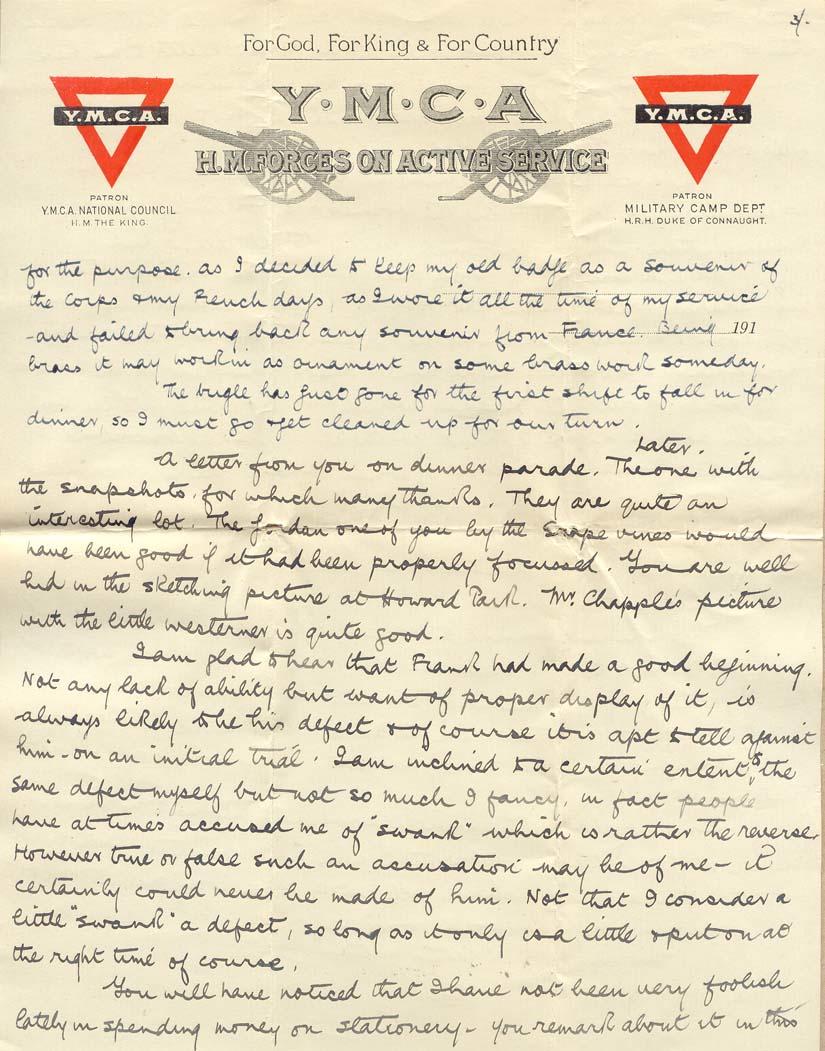 3/-
For God, For King & For Country
Y·M·C·A
H.M. FORCES ON ACTIVE SERVICE
Y.M.C.A.
PATRON
Y.M.C.A. NATIONAL COUNCIL
H.M. THE KING.
Y.M.C.A.
PATRON
MILITARY CAMP DEPT
H.R.H. DUKE OF CONNAUGHT.
for the purpose. as I decided to keep my old badge as a souvenir of
the Corps & my French days, as I wore it all the time of my service
- and failed to bring back any souvenir from France. Being 191
brass it may work in as ornament on some brass work someday.
The bugle has just gone for the first shift to fall in for
dinner, so I must go & get cleaned up for our turn.
Later.
A letter from you on dinner parade. The one with
the snapshots, for which many thanks. They are quite an
interesting lot. The Jordan one of you by the Grape vines would
have been good if it had been properly focussed. You are well
hid in the sketching picture at Howard Park. Mr. Chapple's picture
with the little westerner is quite good.
I am glad to hear that Frank had made a good beginning.
Not any lack of ability but want of proper display of it, is
always likely to be his defect & of course it is apt to tell against
him - on an initial trial. I am inclined to a certain extent to the
same defect myself but not so much I fancy, in fact people
have at times accused me of "swank" which is rather the reverse.
However true or false such an accusation may be of me - it
certainly could never be made of him. Not that I consider a
little "swank" a defect, so long as it only is a little & put on at
the right time of course.
You will have noticed that I have not been very foolish
lately in spending money on stationery - you remark about it in this